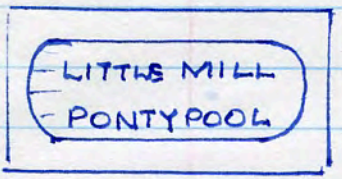 LITTLE MILL
PONTYPOOL